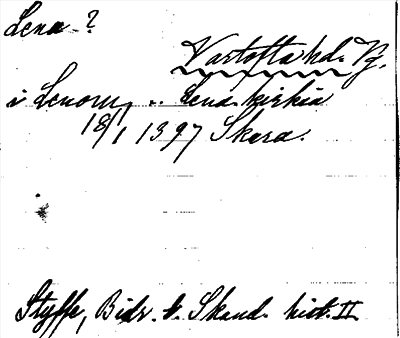 Lena ?
Vartofta hd. Vg.
i Lenom, .. Lena kirkia
18/1 1397 Skara.
Styffe, Bidr. t. Skand. hist. II